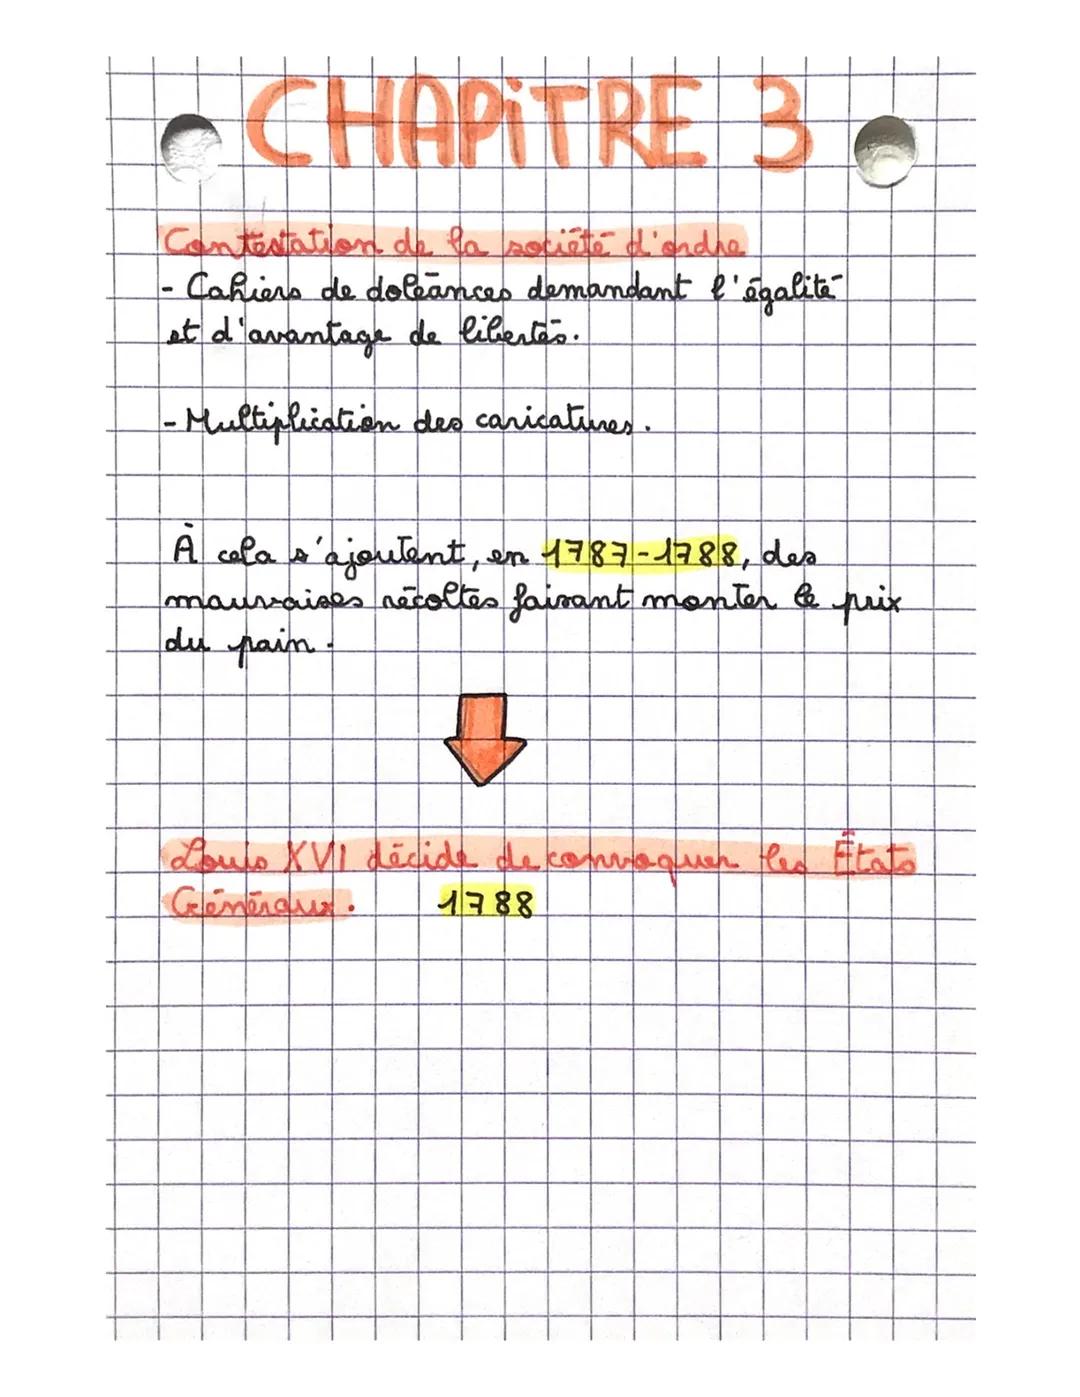 CHAPiTRE 3
Contestation de la société d'ordre
- Cahiers de doléances demandant l'égalité
et d'avantage de libertés.
- Multiplication des caricatures.
À cela s'ajoutent, en 1787-1788, des
mauvaises récoltes faisant monter le prix
du pain.
Louis XVI décide de convoquer les États
Généraux. 1788